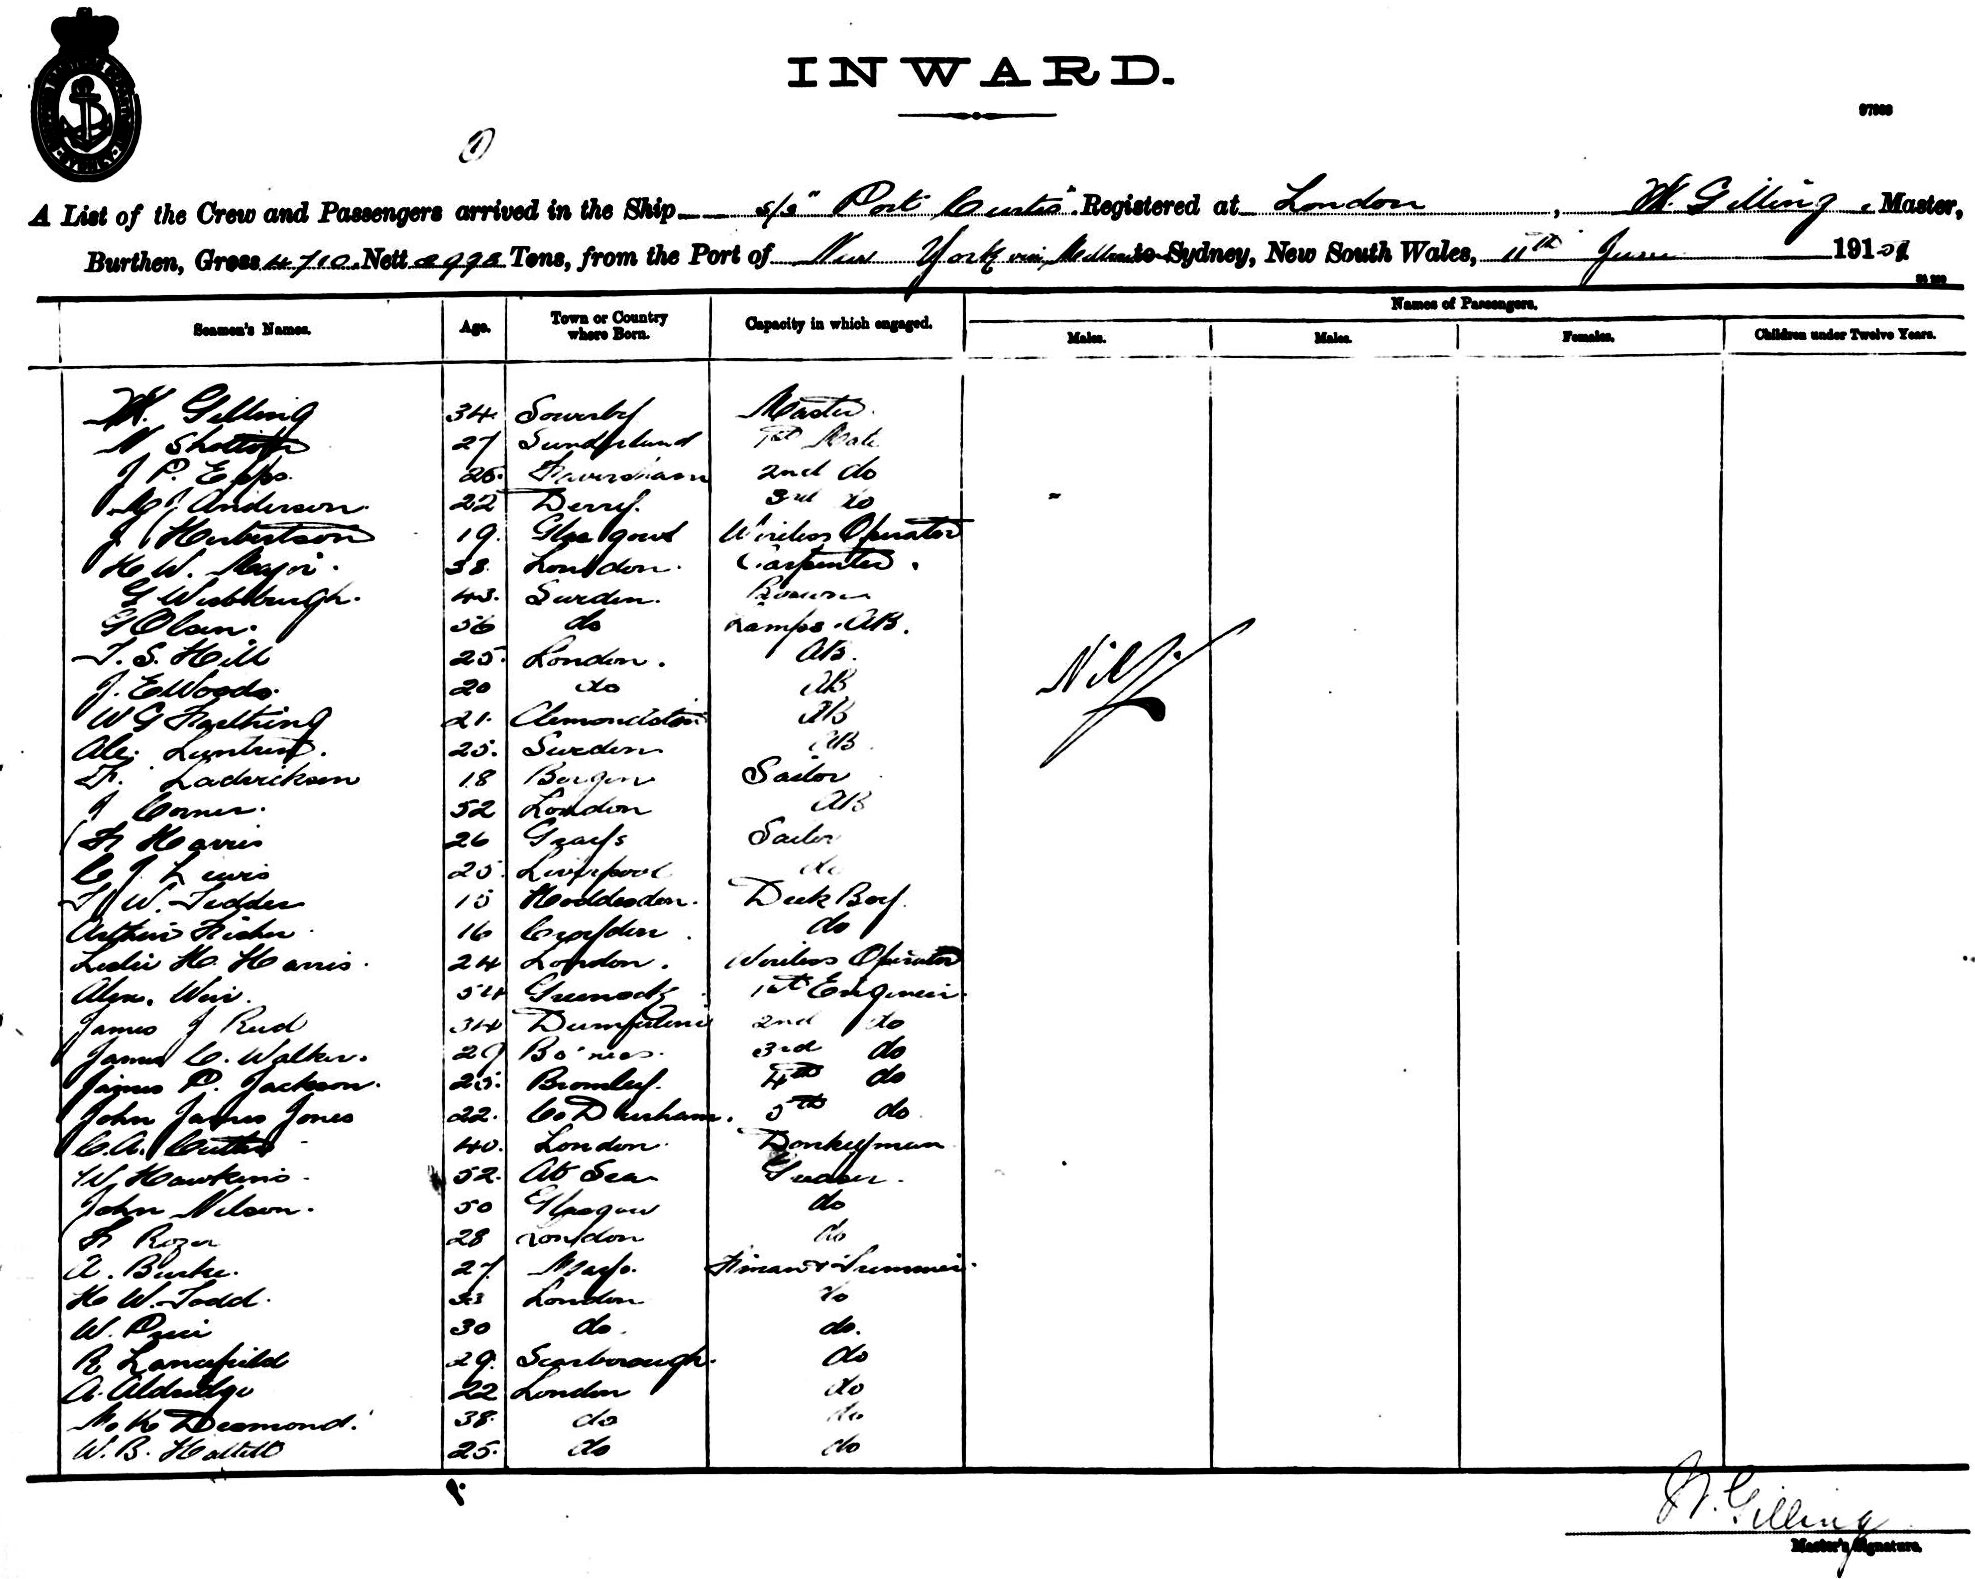 INWARD.
97098
1
A List of the Crew and Passengers arrived in the Ship s/s "Port Curtis". Registered at London, W. Gilling, Master,
Burthen, Gross 4710. Nett 2992 Tons, from the Port of New York via to Sydney, New South Wales, 11th June 191
Seamen's Names. Age. Town or Country where Born. Capacity in which engaged. Names of Passengers.
Males. Males. Females. Children under Twelve Years.
W. Gilling 34. Sowerby Master.
N Shotton 27 Sunderland 1st Mate
J P. Epps. 26. Faversham 2nd do
Anderson. 22 Derry. 3rd do
J. Herbertson 19. Glasgow Wireless Operator
H W. Major. 38. London. Carpenter.
G 43. Sweden. Bosun
G Olsen. 56 do Lamps. AB.
T. S. Hill 25. London. AB.
Nil.
J. E Woods. 20 do AB
W G Farthing 21. AB
25. Sweden AB.
18 Bergen Sailor
J Corner. 52 London AB
F Harris 26 Grays Sailor
C J Lewis 25. Liverpool do
W. Tedder 15 Hoddesdon. Deck Boy.
Arthur Fisher 16 Croydon. do
Leslie H. Harris. 24 London. Wireless Operator
Alex. Weir. 54 Greenock 1st Engineer.
James J Reid 34 Dumfermline 2nd do
James C. Walker. 29 Bo'ness. 3rd do
James P. Jackson. 25. Bromley. 4th do
John James Jones 22. Co Durham. 5th do
C. A. 40. London. Donkeyman
W Hawkins. 52. At Sea Greaser.
John Nelson. 50 Glasgow do
F Rozer 28 London do
A. Burke. 27 Mayo. Fireman & Trimmer.
H W. Todd. 33 London do
W. Price 30 do. do.
R Lancefield 29. Scarborough. do
A. Aldridge 22 London do
Desmond. 38. do do
W. B. Hallett 25. do do
W. Gilling
Master's Signature.